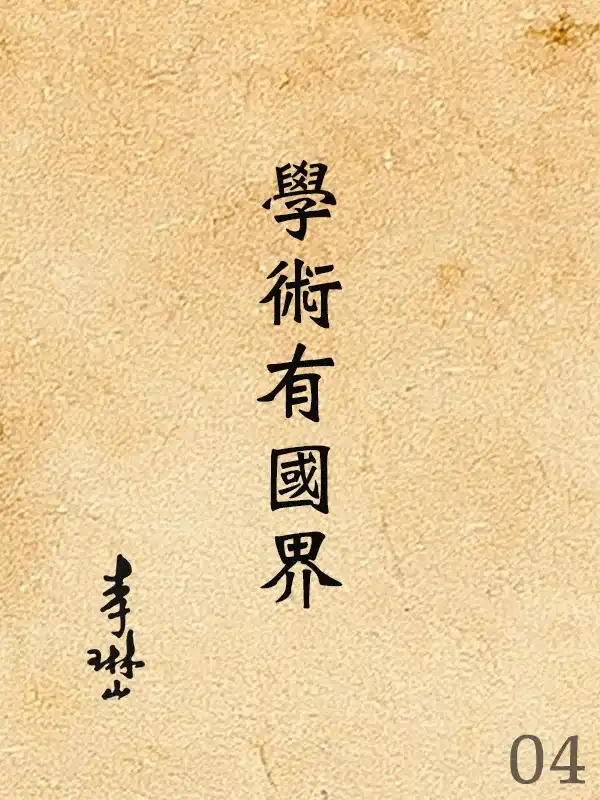 學術有國界
李琳山
04